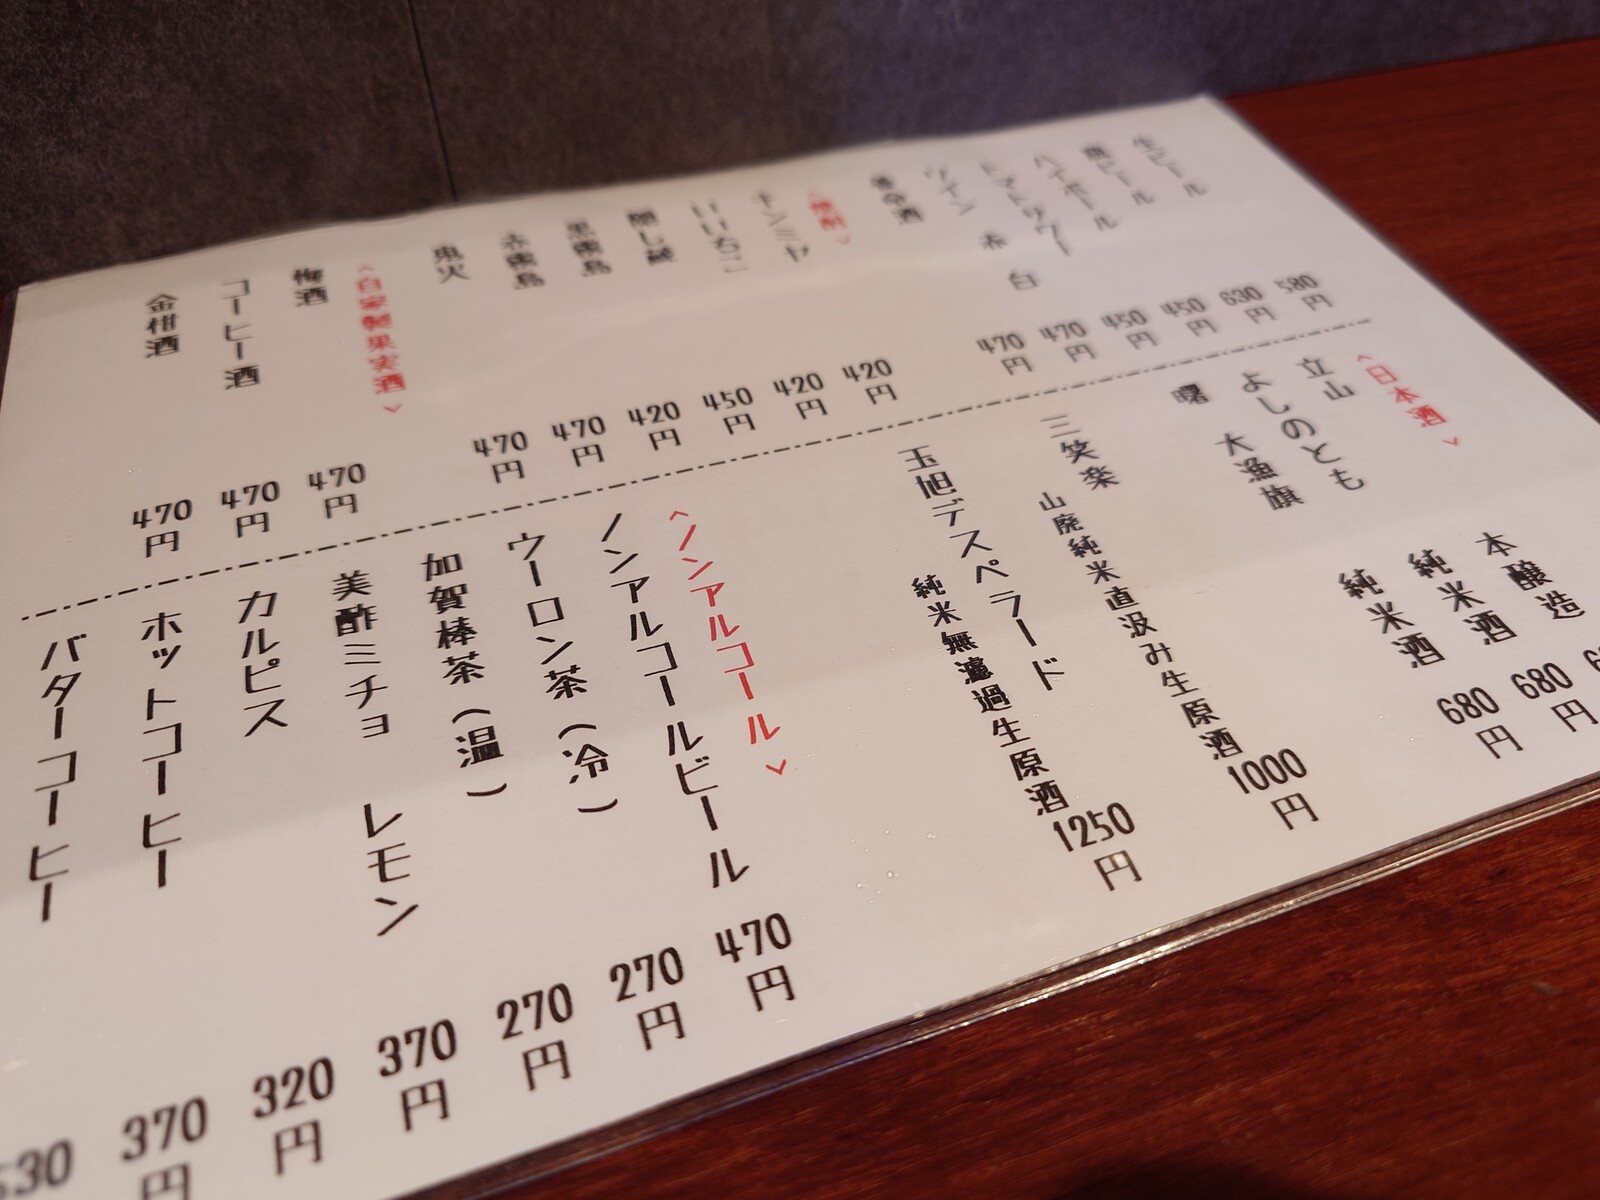 生ビール 580円
瓶ビール 630円
ハイボール 450円
トマトサワー 450円
ワイン 赤 白 470円
養命酒 470円
＜焼酎＞
キンミヤ 420円
いいちこ 420円
隠し蔵 450円
黒霧島 420円
赤霧島 470円
鬼火 470円
＜自家製果実酒＞
梅酒 470円
コーヒー酒 470円
金柑酒 470円
＜日本酒＞
立山 本醸造
よしのとも 純米酒 680円
曙 大漁旗 純米酒 680円
三笑楽 山廃純米直汲み生原酒 1000円
玉旭デスペラード 純米無濾過生原酒 1250円
＜ノンアルコール＞
ノンアルコールビール 470円
ウーロン茶（冷） 270円
加賀棒茶（温） 270円
美酢ミチョ レモン 370円
カルピス 320円
ホットコーヒー 370円
バターコーヒー